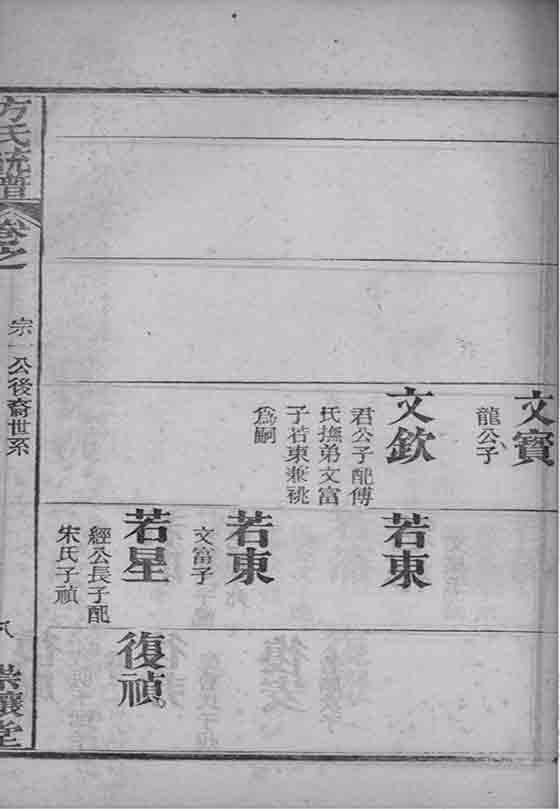 文寶
龍公子
文欽
君公子配傅
氏撫弟文富
子若東兼祧
為嗣
若東
若東
文富子
若星
經公長子配
宋氏子禎
復禎
方氏統譜
卷之
宗一公後裔世系
八
堂